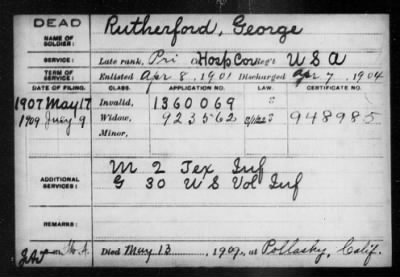 DEAD
NAME OF SOLDIER: Rutherford, George
SERVICE: Late rank, Pri Hosp Cor Reg't U S A
TERM OF SERVICE: Enlisted Apr 8, 1901 Discharged Apr 7, 1904
DATE OF FILING. CLASS. APPLICATION NO. LAW. CERTIFICATE NO.
1907 May 17 Invalid, 1360069
1909 July 9 Widow, 923562 948985
Minor,
ADDITIONAL SERVICES: M 2 Tex Inf
G 30 U S Vol Inf
REMARKS:
Died May 13, 1909, at Pollasky, Calif.